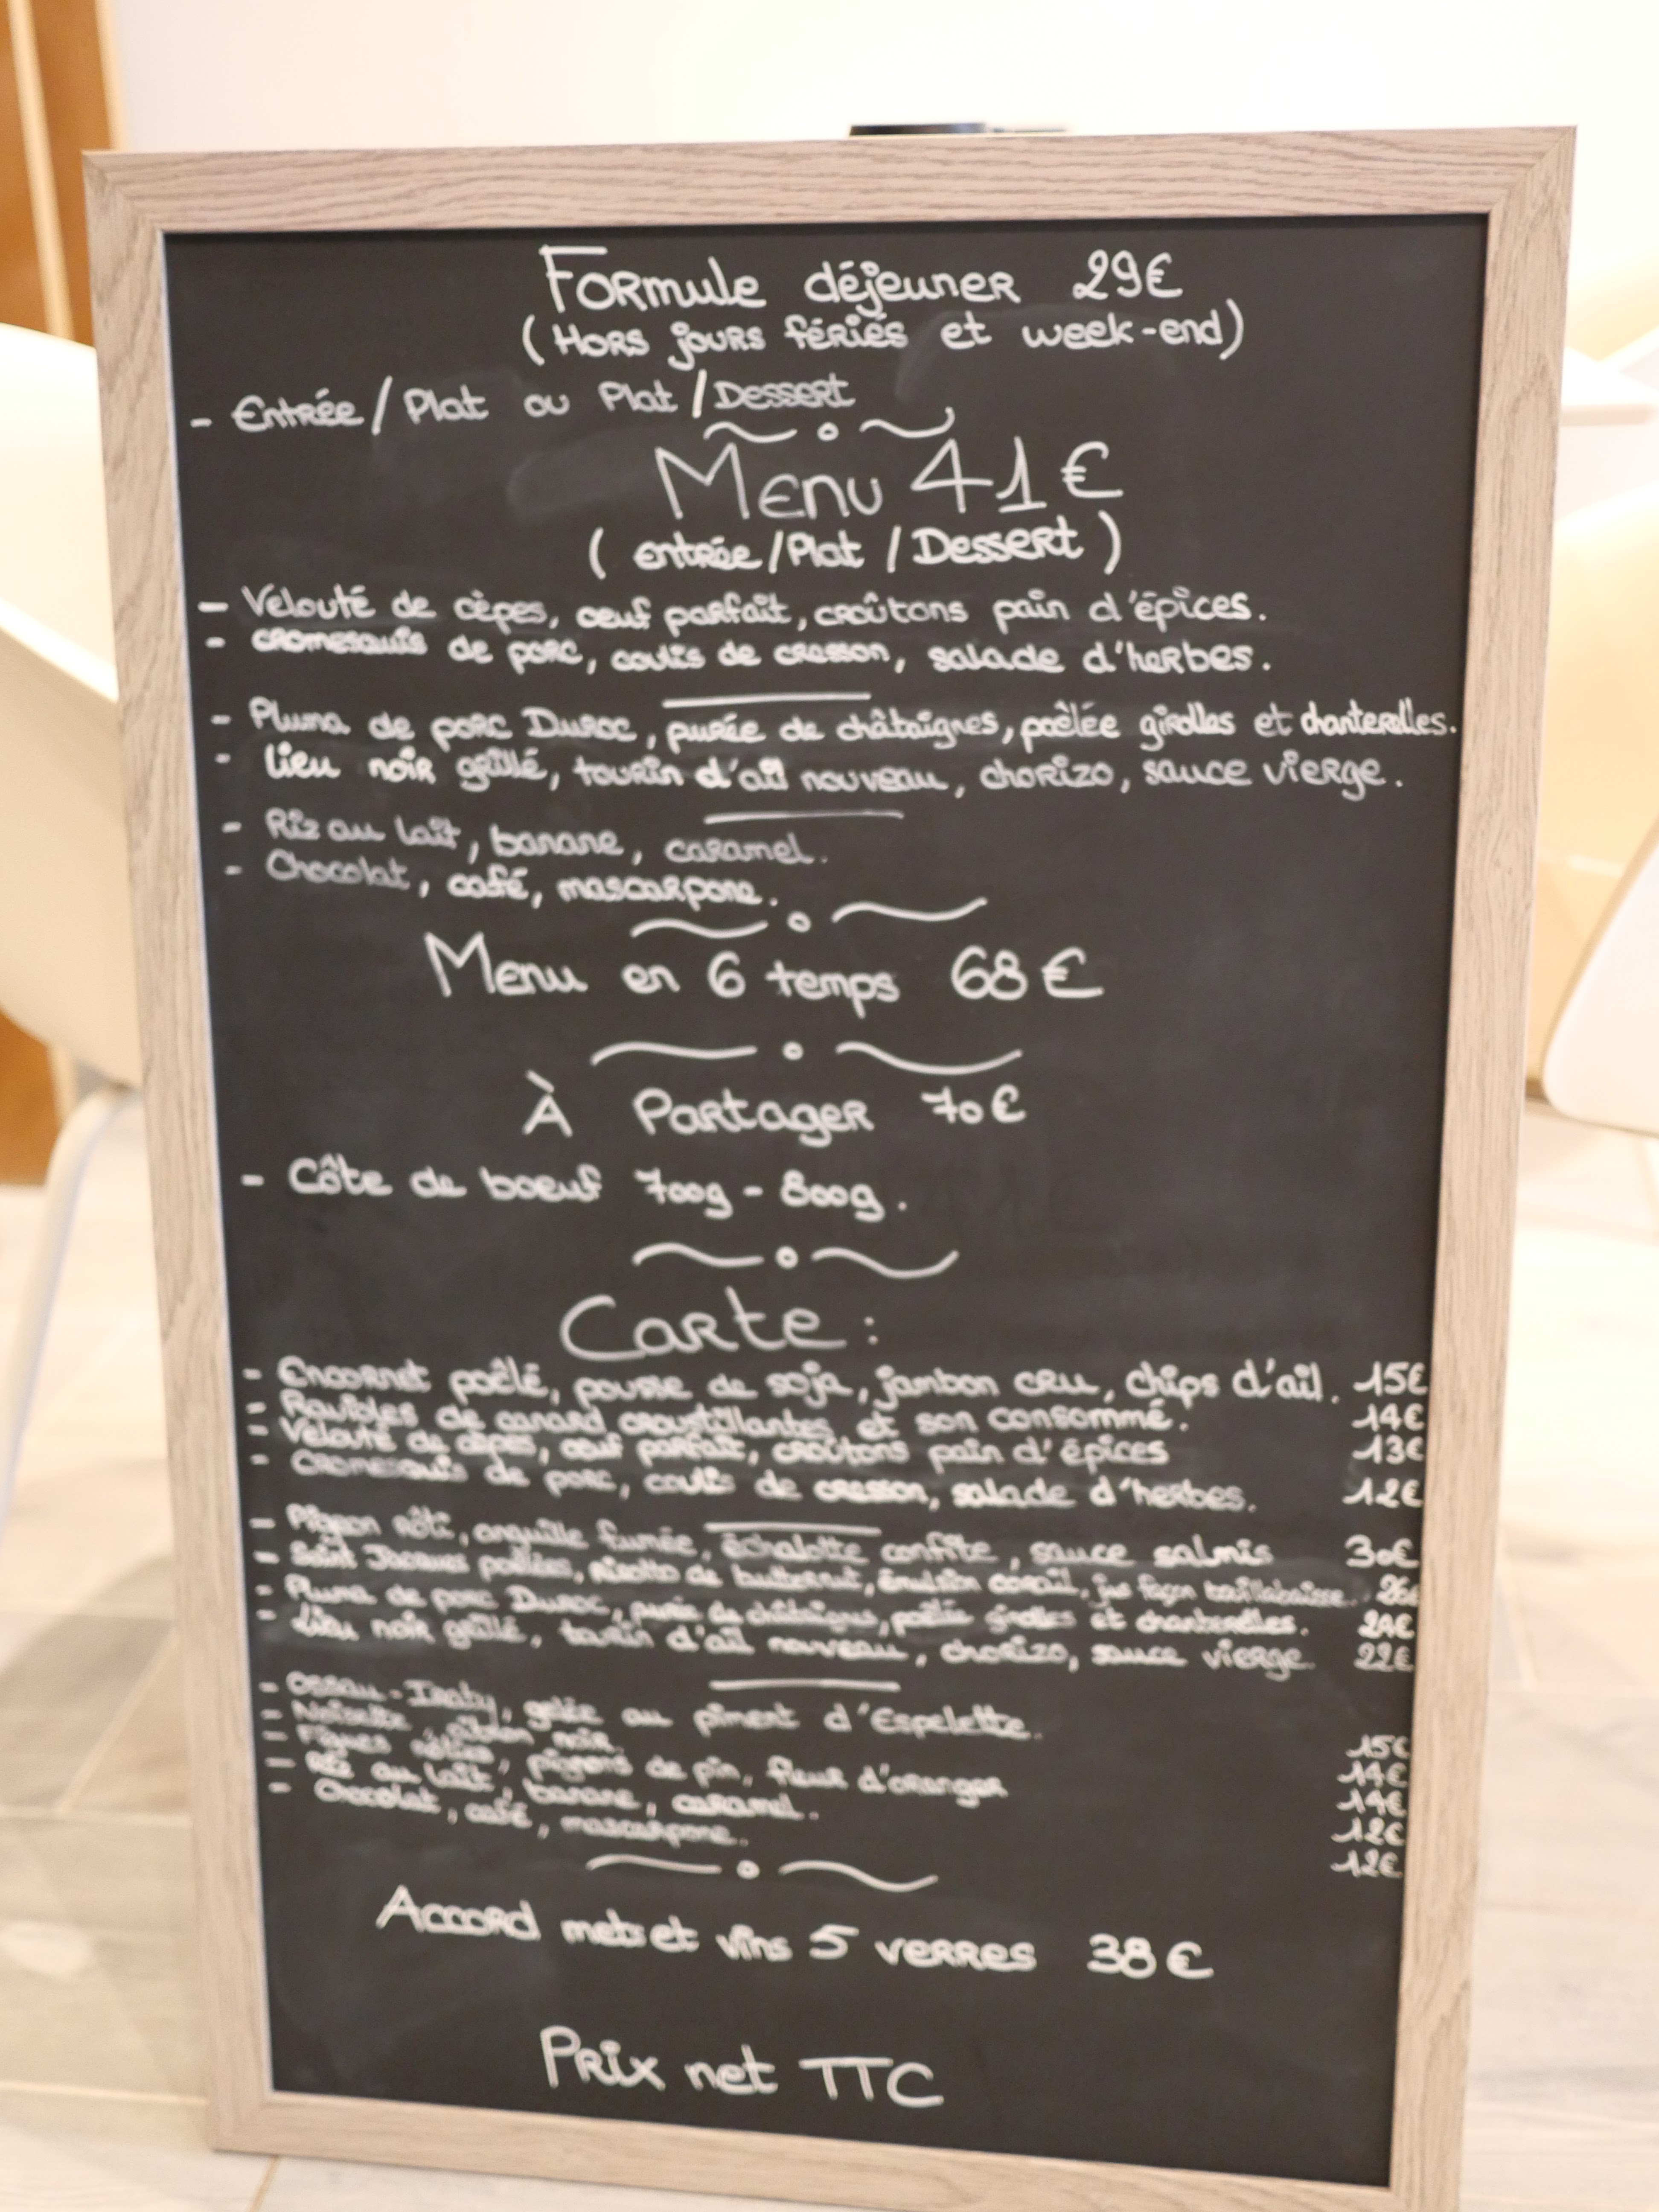 Formule déjeuner 29€
(Hors jours fériés et week-end)
- Entrée/Plat ou Plat/Dessert
Menu 41€
(entrée/Plat/Dessert)
- Velouté de cèpes, oeuf parfait, croûtons pain d'épices.
- cromesquis de porc, coulis de cresson, salade d'herbes.
- Pluma de porc Duroc, purée de châtaignes, poêlée girolles et chanterelles.
- Lieu noir grillé, tourin d'ail nouveau, chorizo, sauce vierge.
- Riz au lait, banane, caramel.
- Chocolat, café, mascarpone.
Menu en 6 temps 68€
À Partager 70€
- Côte de boeuf 700g - 800g.
Carte :
- Encornet poêlé, pousse de soja, jambon cru, chips d'ail. 15€
- Ravioles de canard croustillantes et son consommé. 14€
- Velouté de cèpes, oeuf parfait, croûtons pain d'épices 13€
- Cromesquis de porc, coulis de cresson, salade d'herbes. 12€
- Pigeon rôti, anguille fumée, échalotte confite, sauce salmis 30€
- Saint Jacques poêlées, risotto de butternut, émulsion corail, jus façon bouillabaisse.
- Pluma de porc Duroc, purée de châtaignes, poêlée girolles et chanterelles. 24€
- Lieu noir grillé, tourin d'ail nouveau, chorizo, sauce vierge. 22€
- Ossau-Iraty, gelée au piment d'Espelette. 15€
- Noisette, citron noir. 14€
- Figues rôties, pignons de pin, fleur d'oranger 14€
- Riz au lait, banane, caramel. 12€
- Chocolat, café, mascarpone. 12€
Accord mets et vins 5 verres 38€
Prix net TTC